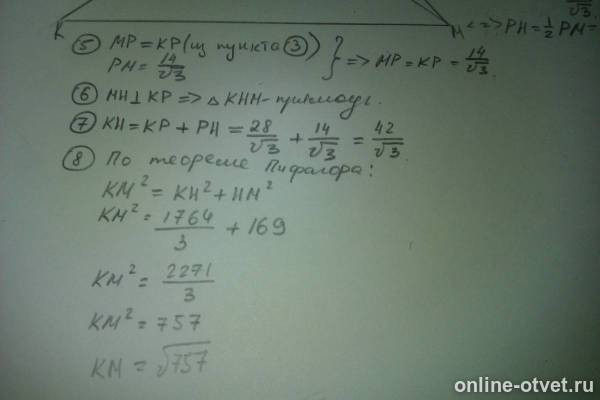 √3
K M <=> PH = 1/2 PM =
⑤ MP = KP (из пункта ③) } => MP = KP = 14/√3
PM = 14/√3
⑥ MH ⊥ KP => △ KHM - прямоуг.
⑦ KH = KP + PH = 28/√3 + 14/√3 = 42/√3.
⑧ По теореме Пифагора:
KM² = KH² + HM²
KM² = 1764/3 + 169
KM² = 2271/3
KM² = 757
KM = √757
online-otvet.ru